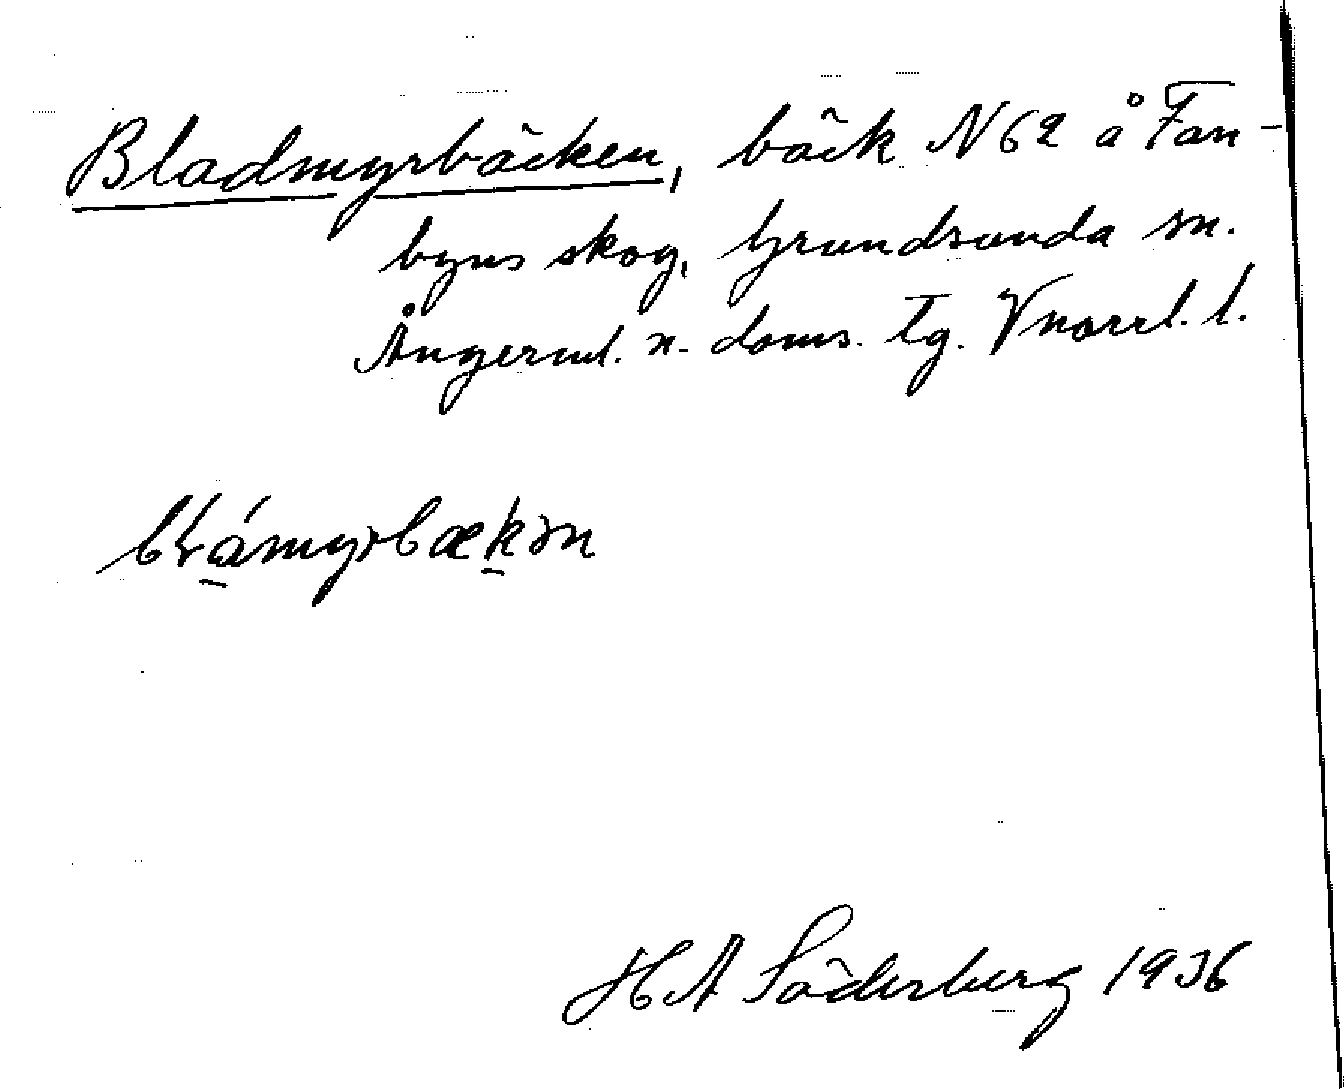 Bladmyrbäcken, bäck N 62 å Fan-
byns skog, Grundsunda sn.
Ångerml. n. doms. tg. Vnorrl. l.
H A Söderberg 1936